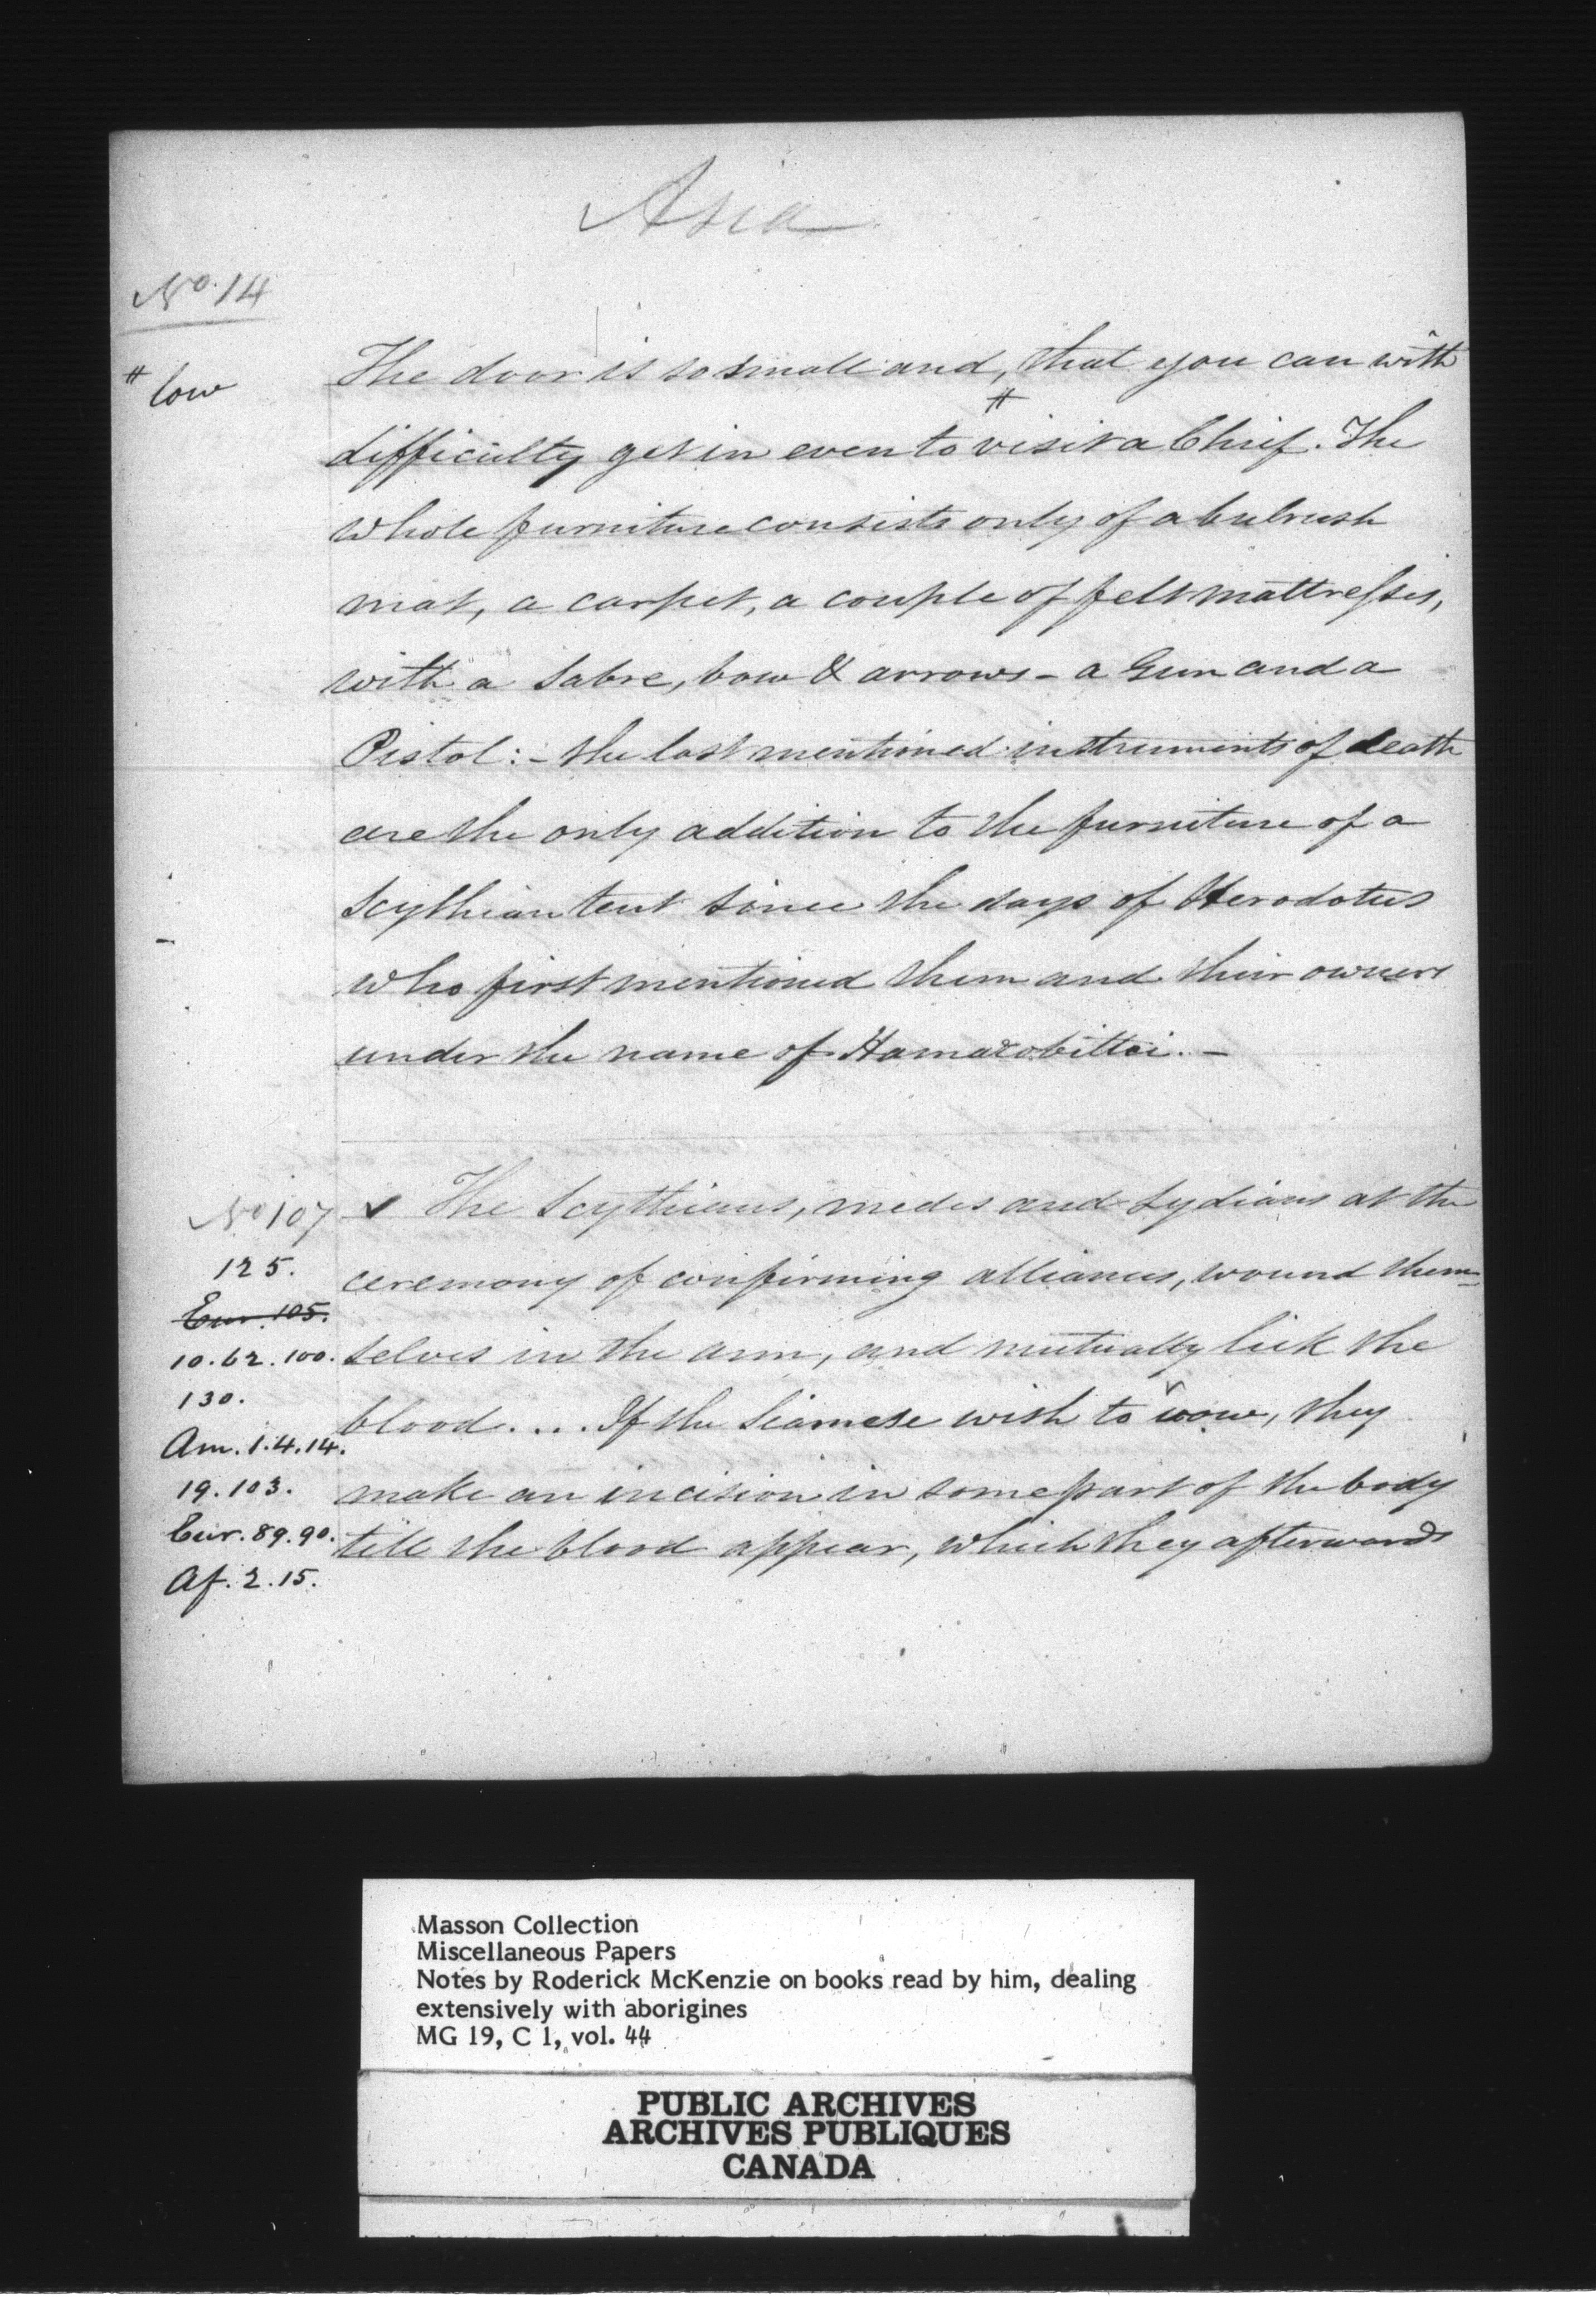 Asia
No. 14
# low
The door is so small and, # that you can with
difficulty get in even to visit a Chief. The
whole furniture consists only of a bulrush
mat, a carpet, a couple of felt mattresses,
with a Sabre, bow & arrows - a Gun and a
Pistol: - the last mentioned instruments of death
are the only addition to the furniture of a
Scythian tent since the days of Herodotus
who first mentioned them and their owners
under the name of Hamaxobittoi. -
No 107
125.
Eur. 105.
10. 62. 100.
130.
Am. 1. 4. 14.
19. 103.
Eur. 89. 90.
Af. 2. 15.
✓ The Scythians, medes and Lydians at the
ceremony of confirming alliances, wound them-
selves in the arm, and mutually lick the
blood. ... If the Siamese wish to vow, they
make an incision in some part of the body
till the blood appear, which they afterwards
Masson Collection
Miscellaneous Papers
Notes by Roderick McKenzie on books read by him, dealing
extensively with aborigines
MG 19, C 1, vol. 44
PUBLIC ARCHIVES
ARCHIVES PUBLIQUES
CANADA